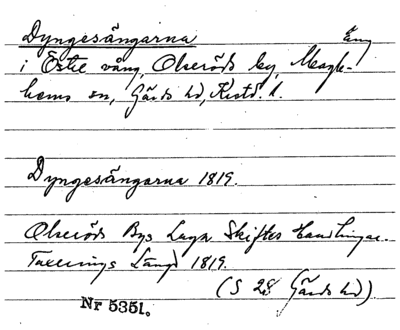 Dyngesängarna Äng
i Östre vång, Olseröds by, Magle-
hems sn, Gärds hd, Krstd. l.
Dyngesängarna 1819.
Olseröds Bys Laga Skiftes Handlingar.
Taxerings Längd 1819.
(S 28 Gärds hd).
Nr 5351.